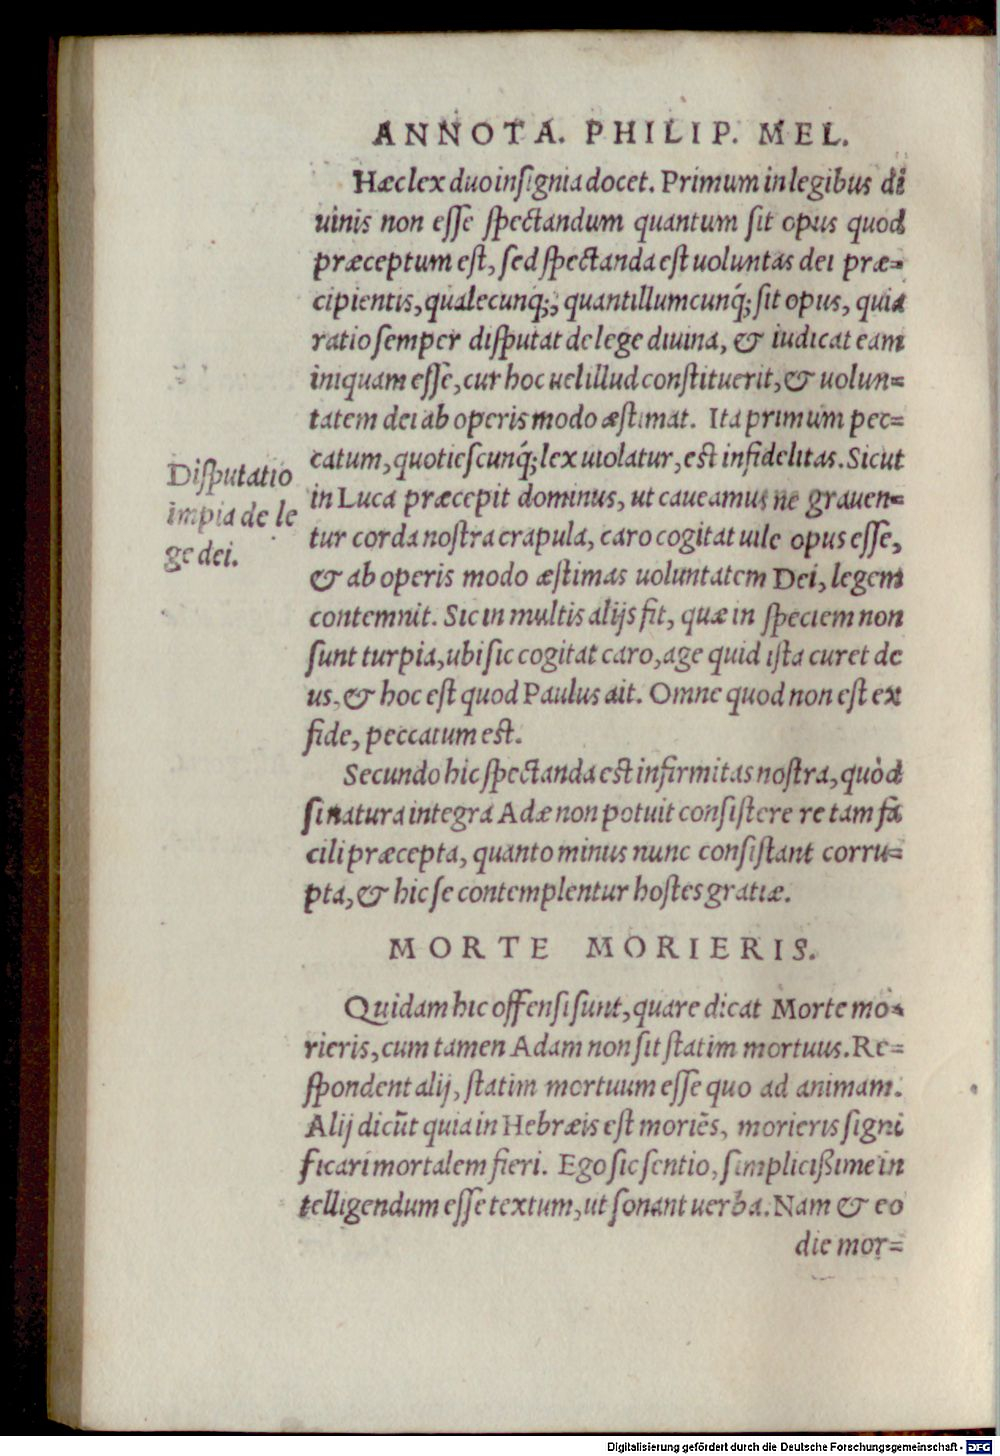 ANNOTA. PHILIP. MEL.
Hæc lex duo insignia docet. Primum in legibus di
uinis non esse spectandum quantum sit opus quod
præceptum est, sed spectanda est uoluntas dei præ-
cipientis, qualecunq;, quantillumcunq́; sit opus, quia
ratio semper disputat de lege diuina, & iudicat eam
iniquam esse, cur hoc uel illud constituerit, & uolun-
tatem dei ab operis modo æstimat. Ita primum pec-
catum, quotiescunq́; lex uiolatur, est infidelitas. Sicut
in Luca præcepit dominus, ut caueamus ne grauen-
tur corda nostra crapula, caro cogitat uile opus esse,
& ab operis modo æstimas uoluntatem Dei, legem
contemnit. Sic in multis alijs fit, quæ in speciem non
sunt turpia, ubi sic cogitat caro, age quid ista curet de
us, & hoc est quod Paulus ait. Omne quod non est ex
fide, peccatum est.
Disputatio
impia de le
ge dei.
Secundo hic spectanda est infirmitas nostra, quòd
si natura integra Adæ non potuit consistere re tam fa
cili præcepta, quanto minus nunc consistant corru-
pta, & hic se contemplentur hostes gratiæ.
MORTE MORIERIS.
Quidam hic offensi sunt, quare dicat Morte mo-
rieris, cum tamen Adam non sit statim mortuus. Re-
spondent alij, statim mortuum esse quo ad animam.
Alij dicūt quia in Hebræis est moriēs, morieris signi
ficari mortalem fieri. Ego sic sentio, simplicißime in
telligendum esse textum, ut sonant uerba. Nam & eo
die mor-
Digitalisierung gefördert durch die Deutsche Forschungsgemeinschaft - DFG